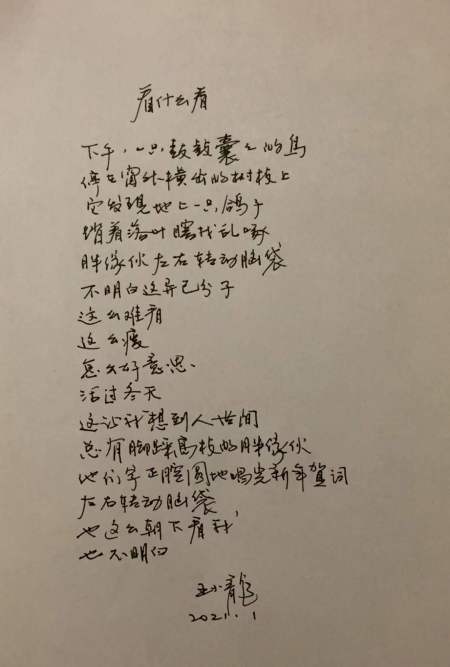 看什么看
下午，一只鼓鼓囊囊的鸟
停在窗外横出的树枝上
它发现地上一只鸽子
踏着落叶瞎找乱啄
胖傢伙左右转动脑袋
不明白这异己分子
这么难看
这么瘦
怎么好意思
活过冬天
这让我想到人世间
总有脚踩高枝的胖傢伙
他们字正腔圆地唱完新年贺词
左右转动脑袋，
也这么朝下看我，
也不明白
王小龍
2021.1